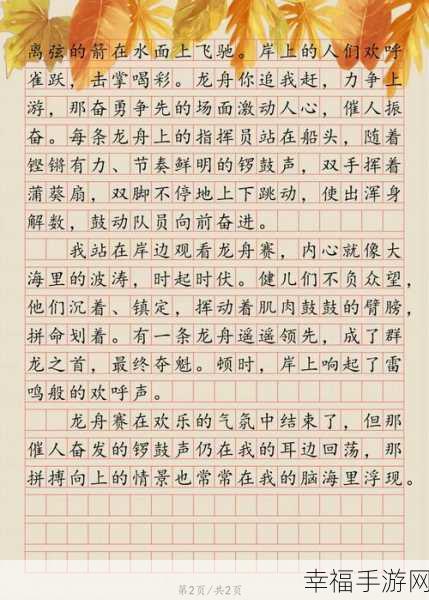 离弦的箭在水面上飞驰。岸上的人们欢呼
雀跃，击掌喝彩。龙舟你追我赶，力争上
游，那奋勇争先的场面激动人心，催人振
奋。每条龙舟上的指挥员站在船头，随着
铿锵有力、节奏鲜明的锣鼓声，双手挥着
蒲葵扇，双脚不停地上下跳动，使出浑身
解数，鼓动队员向前奋进。
我站在岸边观看龙舟赛，内心就像大
海里的波涛，时起时伏。健儿们不负众望，
他们沉着、镇定，挥动着肌肉鼓鼓的臂膀，
拼命划着。有一条龙舟遥遥领先，成了群
龙之首，最终夺魁。顿时，岸上响起了雷
鸣般的欢呼声。
龙舟赛在欢乐的气氛中结束了，但那
催人奋发的锣鼓声仍在我的耳边回荡，那
拼搏向上的情景也常常在我的脑海里浮现。
第2页/共2页
幸福手游网